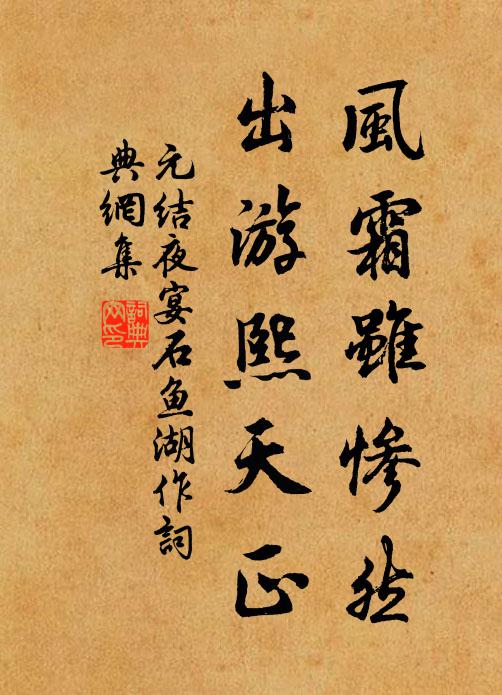 風霜雖慘然
出游熙天正
元結夜宴石魚湖作詞
典網集
詞典
网印